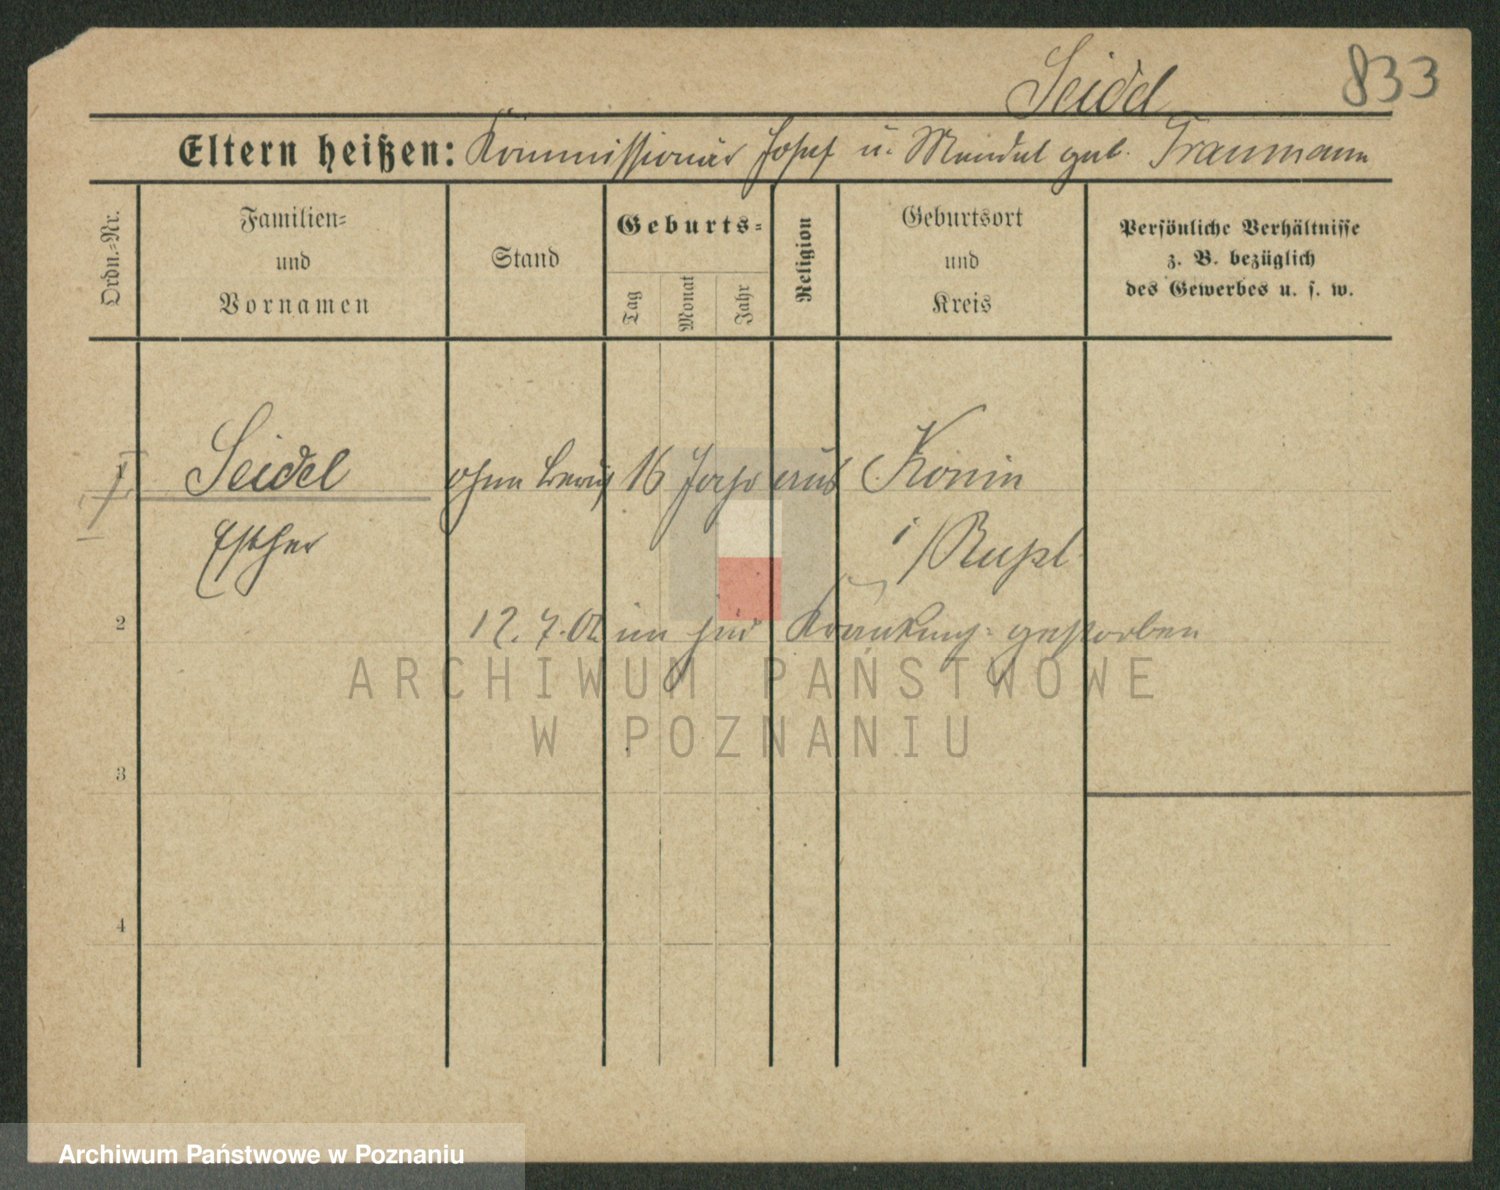 833
Seidel
Eltern heißen: Kommissionär Josef u. Mendel geb. Traumann
Ordn.-Nr.
Familien-
und
Vornamen
Stand
Geburts-
Tag
Monat
Jahr
Religion
Geburtsort
und
Kreis
Persönliche Verhältnisse
z. B. bezüglich
des Gewerbes u. s. w.
1 Seidel ohne Beruf 16 Jahr aus Konin
Esther i/Rußl.
2 12.7.02 im jüd Krankenh. gestorben
3
4
ARCHIWUM PAŃSTWOWE
W POZNANIU
Archiwum Państwowe w Poznaniu